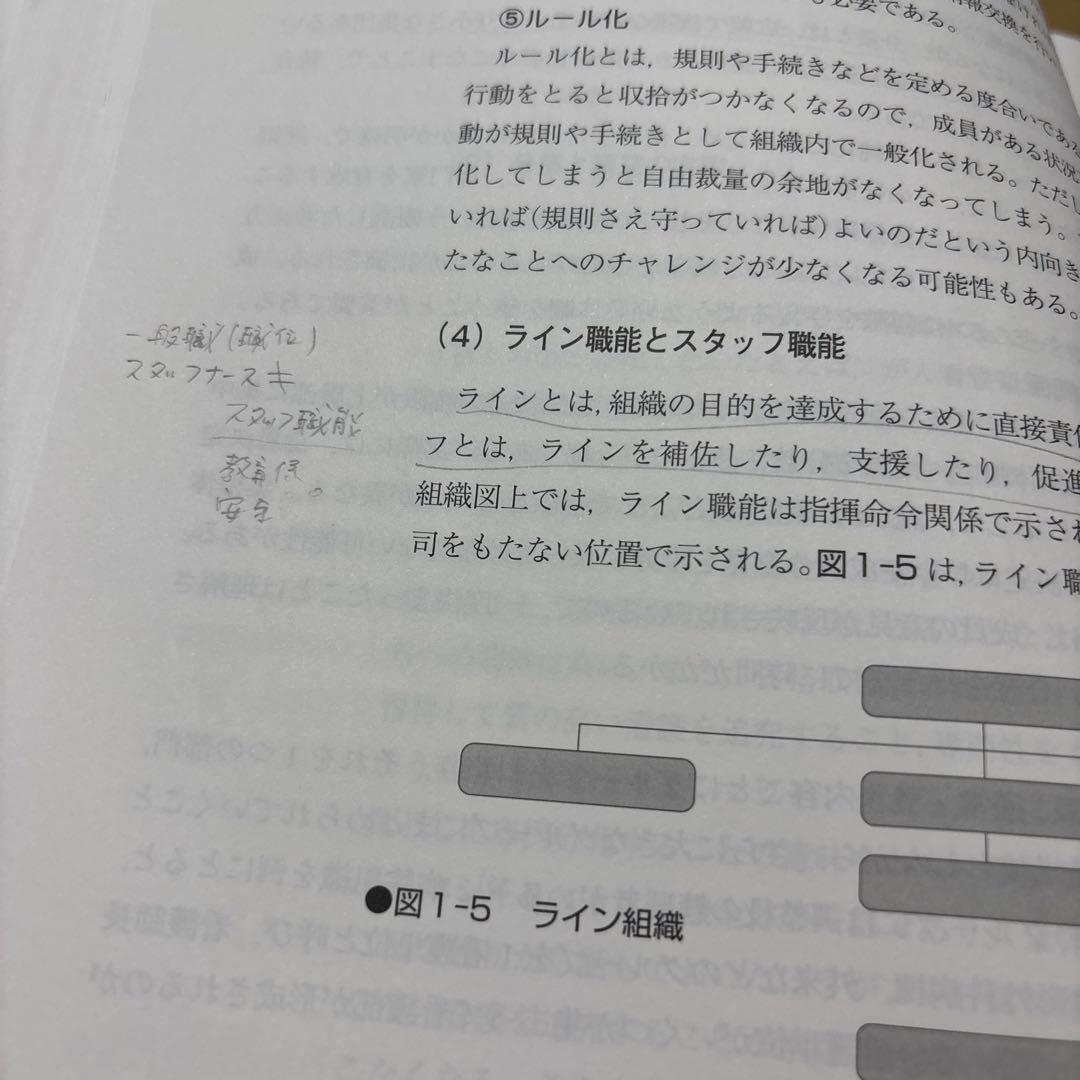 も必要である。
⑤ルール化
ルール化とは，規則や手続きなどを定める度合いである
行動をとると収拾がつかなくなるので，成員がある状況
動が規則や手続きとして組織内で一般化される。ただし
化してしまうと自由裁量の余地がなくなってしまう。
いれば（規則さえ守っていれば）よいのだという内向き
たなことへのチャレンジが少なくなる可能性もある。
一般職（職位）
スタッフナース
スタッフ職能
教育係
安全
（4）ライン職能とスタッフ職能
ラインとは，組織の目的を達成するために直接責任
フとは，ラインを補佐したり，支援したり，促進
組織図上では，ライン職能は指揮命令関係で示され
司をもたない位置で示される。図1-5は，ライン職
●図1-5 ライン組織